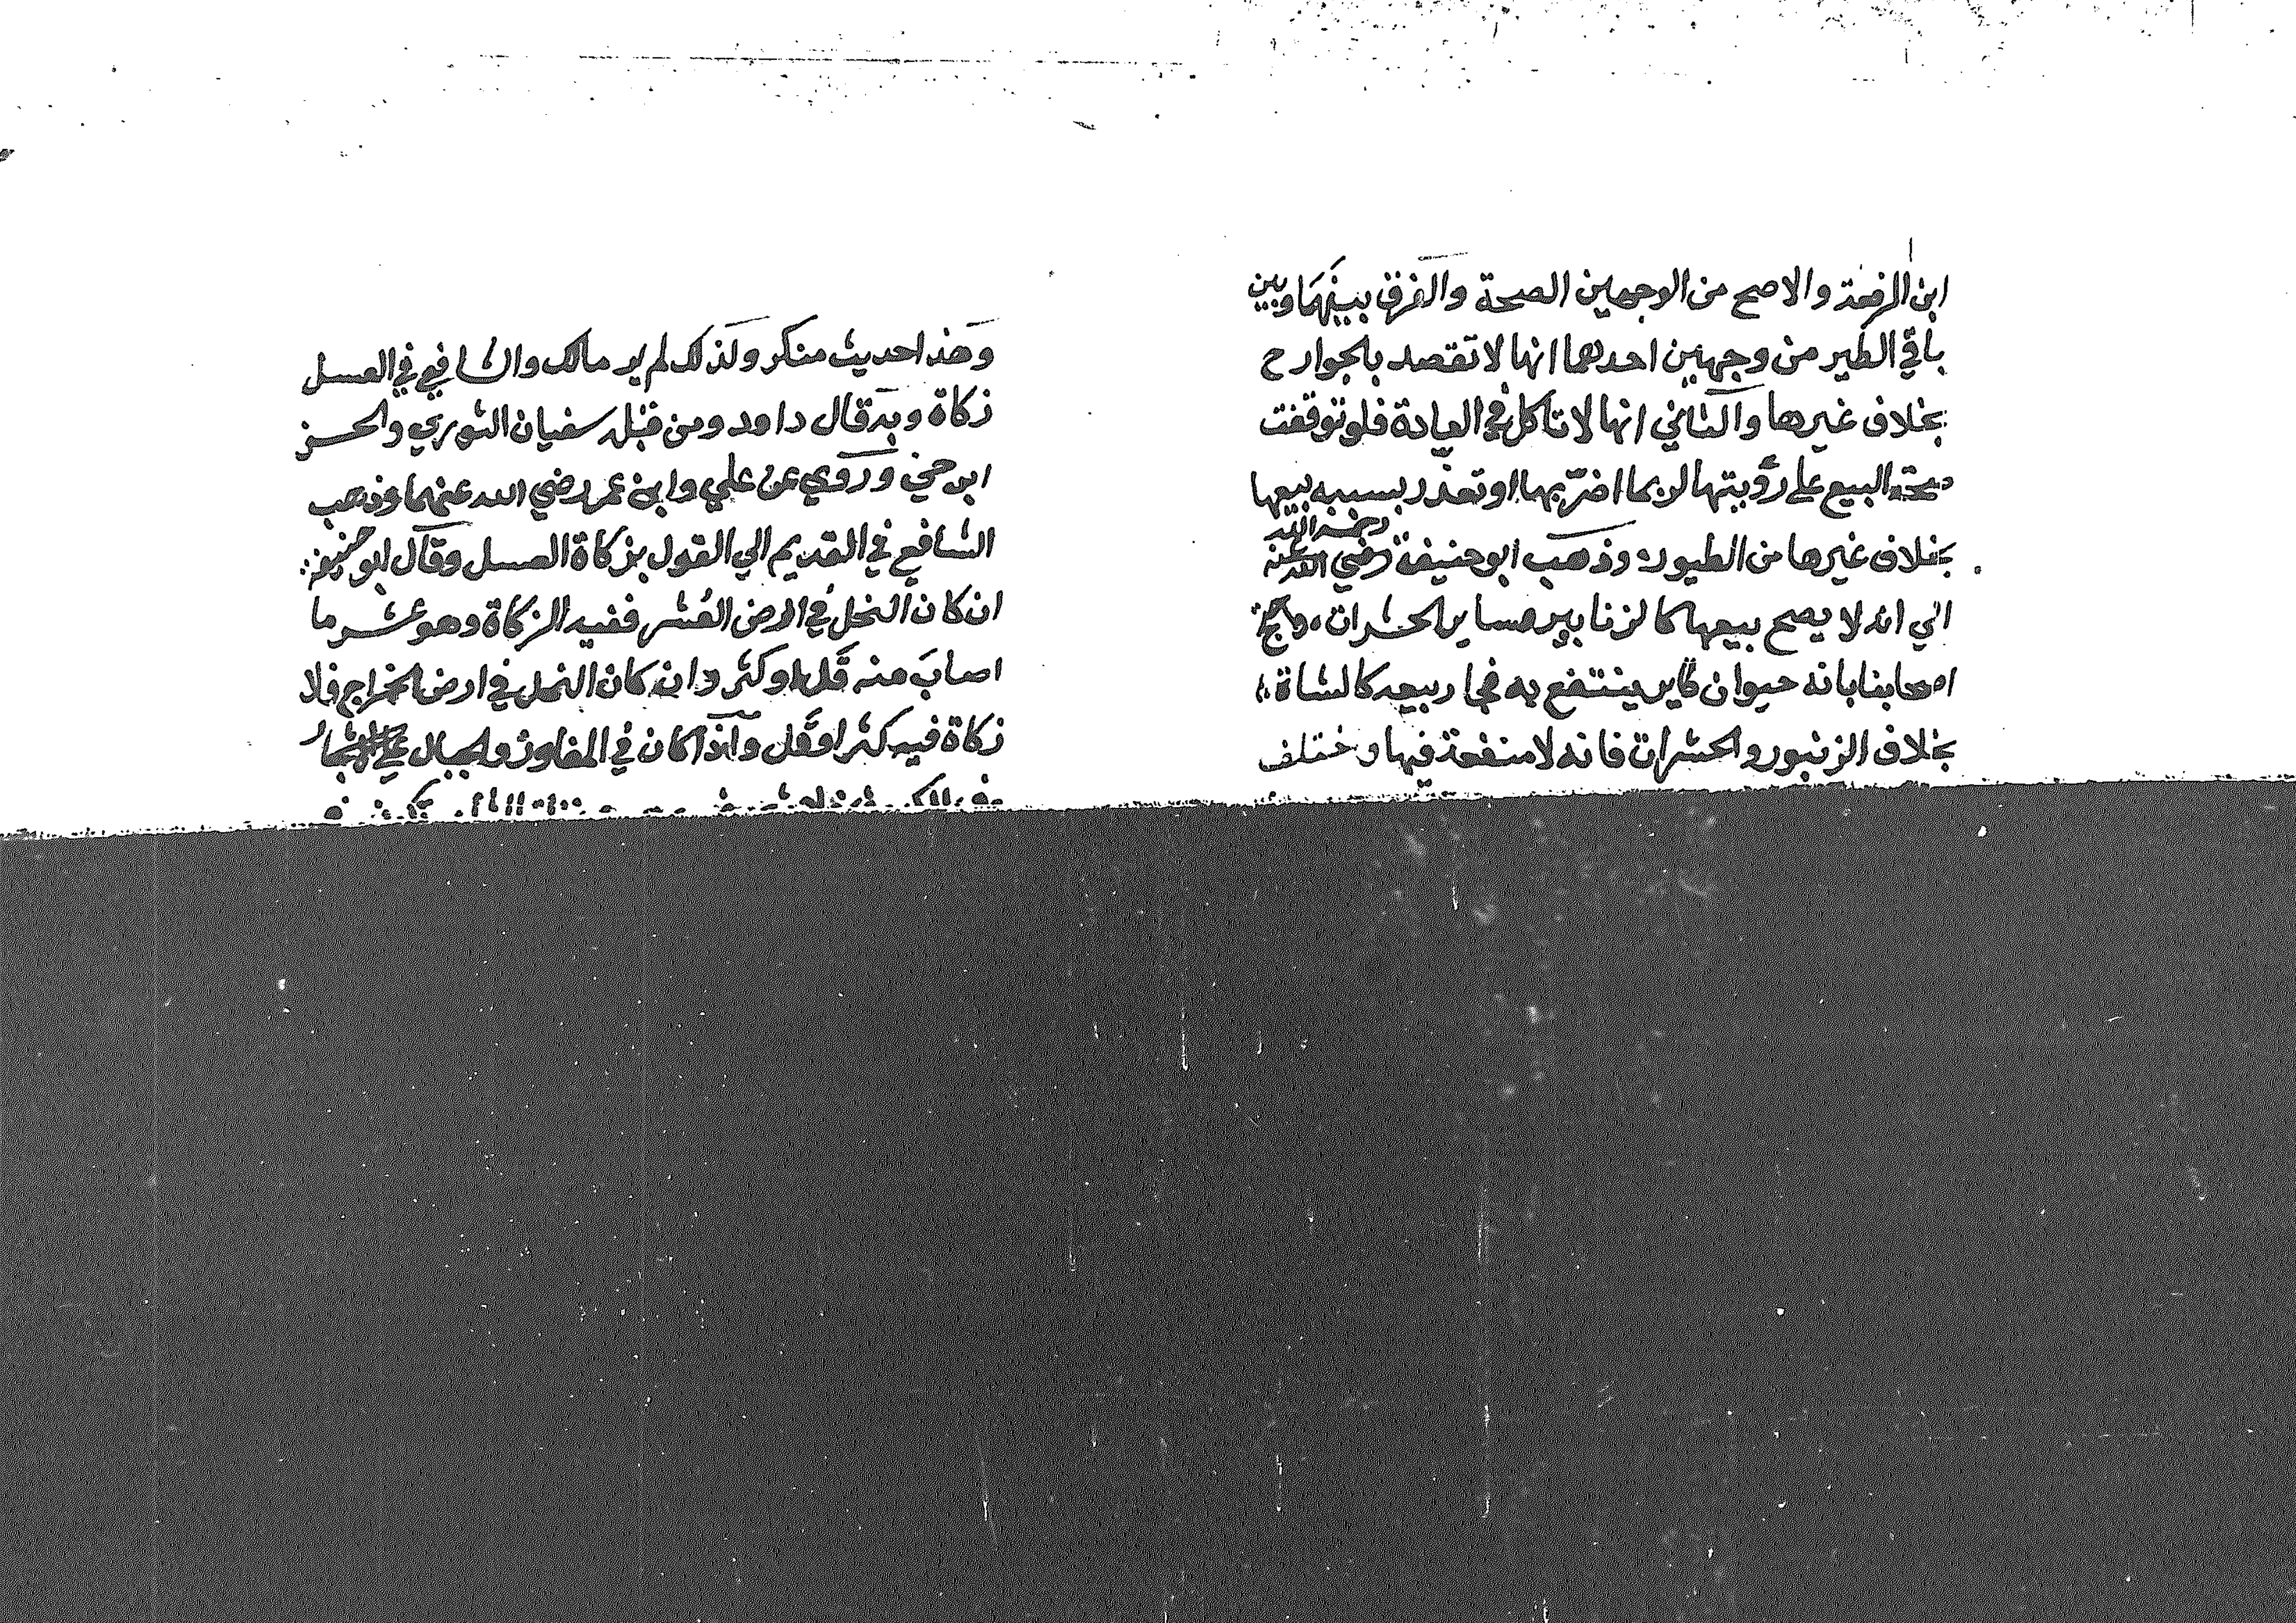 ابن الرفعة والاصح من الوجهين الصحة والفرق بينهما وبين
باقي الطير من وجهين احدهما انها لا تقصد بالجوارح
بخلاف غيرها والثاني انها لا تاكل في العادة فلو توقفت
صحة البيع على رؤيتها لربما اضر بها او تعذر بسببه بيعها
بخلاف غيرها من الطيور وذهب ابو حنيفة رضي الله عنه
رحمه الله
الي انه لا يصح بيعها كالزنابير وساير الحشرات واحتج
اصحابنا بانه حيوان طاير ينتفع به فجاز بيعه كالشاة
بخلاف الزنبور والحشرات فانه لا منفعة فيها واختلف
وهذا حديث منكر ولذلك لم ير مالك والشافعي في العسل
زكاة وبه قال داود ومن قبله سفيان الثوري والحسن
ابن حي وروي عن علي وابن عمر رضي الله عنهما وذهب
الشافعي في القديم الي القول بزكاة العسل وقال ابو حنيفة
ان كان النحل في ارض العُشر ففيه الزكاة وهو عشر ما
اصاب منه قل او كثر وان كان النحل في ارض الخراج فلا
زكاة فيه كثر او قل واذا كان في المفاوز والجبال علي الاشجار